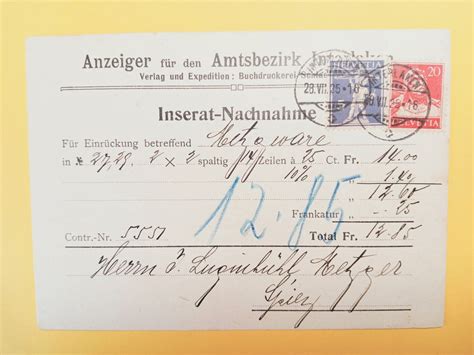 Anzeiger für den Amtsbezirk Interlaken
Verlag und Expedition: Buchdruckerei
HELVETIA
INTERLAKEN
28.VII.25-16
20
HELVETIA
Inserat-Nachnahme
Für Einrückung betreffend Metzgware
in № 27,29. 2 x 2 spaltig 14 Zeilen à 25 Ct. Fr. 14.00
10% " 1.40
" 12.60
Frankatur " -.25
Contr.-Nr. 5551 Total Fr. 12.85
12.85
Herrn J. Luginbühl Metzger
Spiez